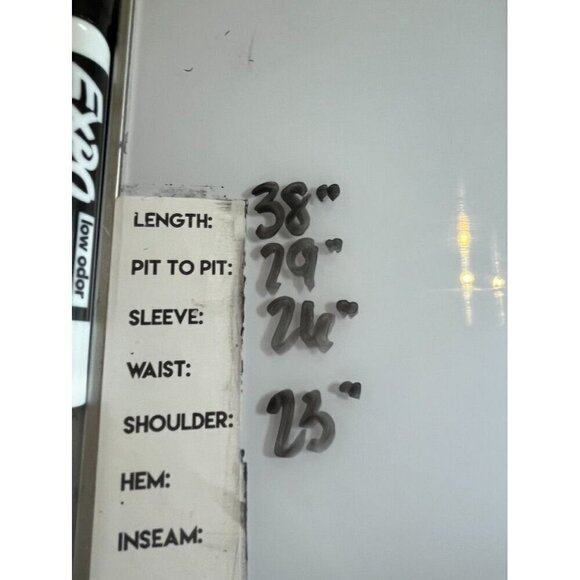 EXPO
low odor
LENGTH: 38"
PIT TO PIT: 29"
SLEEVE: 26"
WAIST:
SHOULDER: 23"
HEM:
INSEAM: